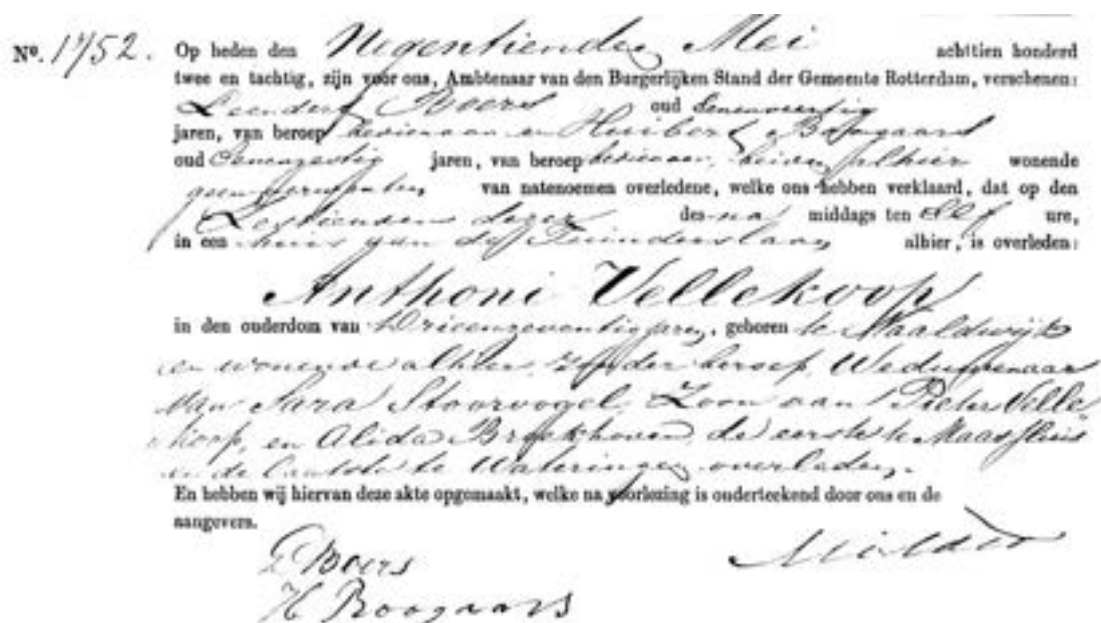 No. 1752. Op heden den Negentienden Mei achttien honderd
twee en tachtig, zijn voor ons, Ambtenaar van den Burgerlijken Stand der Gemeente Rotterdam, verschenen:
Leendert Boers oud
jaren, van beroep bediende en Huibert Boogaars
oud jaren, van beroep beiden alhier wonende
geen van natenoemen overledene, welke ons hebben verklaard, dat op den
Zestienden dezer des na middags ten Elf ure,
in een huis aan de Tuinderslaan alhier, is overleden:
Anthoni Vellekoop
in den ouderdom van Drieenzeventig jaren, geboren te Naaldwijk
en wonende alhier, zonder beroep, Weduwenaar
van Sara Stoorvogel, Zoon van Pieter Velle
koop, en Alida Broekhoven, de eerste te Maassluis
en de laatste te Wateringen overleden.
En hebben wij hiervan deze akte opgemaakt, welke na voorlezing is onderteekend door ons en de
aangevers.
L Boers
H Boogaars